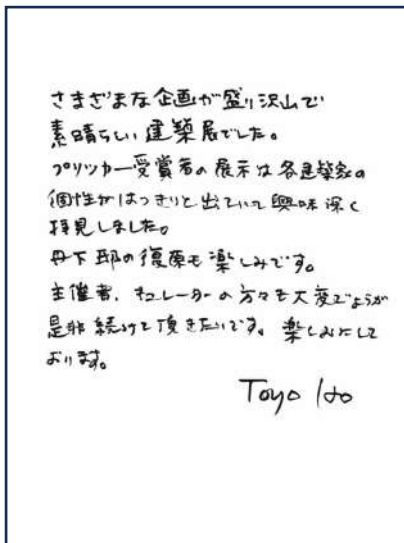 さまざまな企画が盛り沢山で
素晴らしい建築展でした。
プリツカー受賞者の展示は各建築家の
個性がはっきりと出ていて興味深く
拝見しました。
丹下邸の復原も楽しみです。
主催者、キュレーターの方々も大変でしょうが
是非続けて頂きたいです。楽しみにして
おります。
Toyo Ito